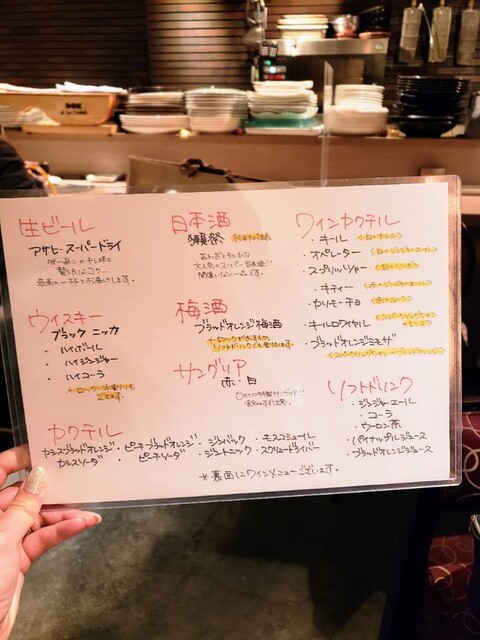 生ビール
アサヒ・スーパードライ
ウイスキー
ブラック ニッカ
・ハイボール
・ハイジンジャー
・ハイコーラ
日本酒
獺祭
梅酒
ブラッドオレンジ梅酒
サングリア
赤・白
ワインカクテル
・キール
・オペレーター
・スプリッツァー
・キティー
・カリモーチョ
・キールロワイヤル
・ブラッドオレンジミモザ
ソフトドリンク
・ジンジャーエール
・コーラ
・ウーロン茶
・パイナップルジュース
・ブラッドオレンジジュース
カクテル
カシスブラッドオレンジ ・ピーチブラッドオレンジ ・ジンバック ・モスコミュール
カシスソーダ ・ピーチソーダ ・ジントニック ・スクリュードライバー
*裏面にワインメニューございます。